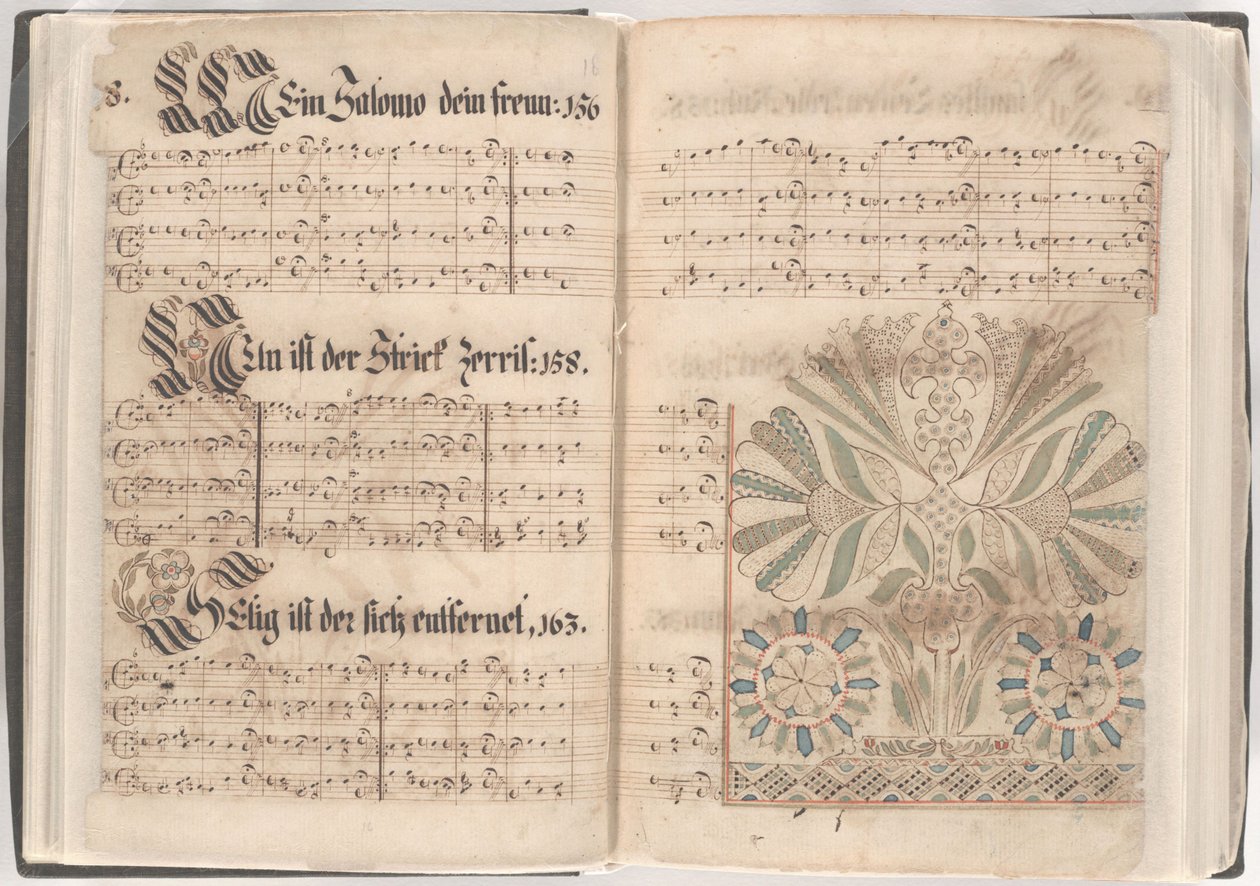 8.
MEin Salomo dein freun: 156
NUn ist der Strick zerris: 158.
SElig ist der sich entfernet, 163.